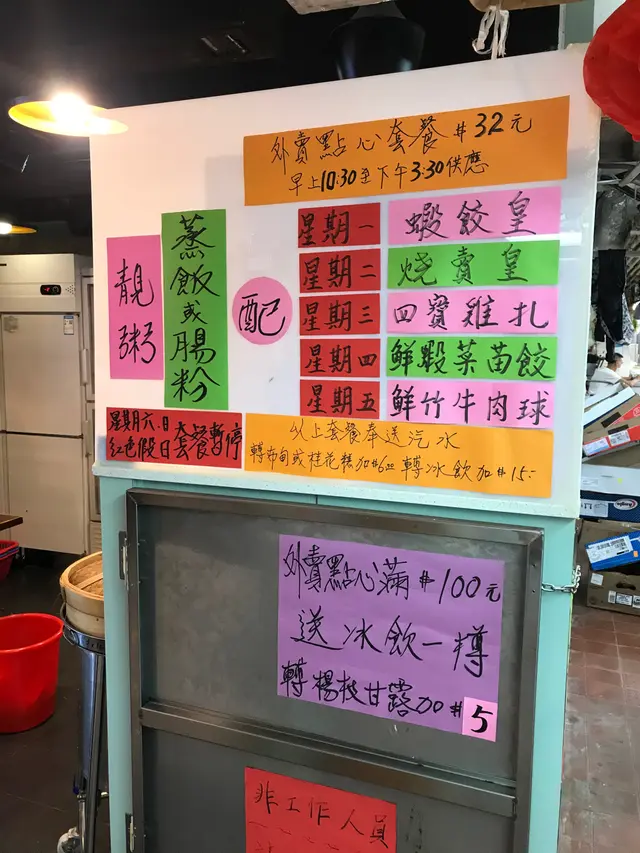 外賣點心套餐 $32元
早上10:30至下午3:30供應
靚粥
蒸飯或腸粉
配
星期一 蝦餃皇
星期二 烧賣皇
星期三 四寶雞扎
星期四 鮮蝦菜苗餃
星期五 鮮竹牛肉球
星期六.日
紅色假日
套餐暫停
以上套餐奉送汽水
轉布甸或桂花糕加$6.00 轉冰飲加$15.-
外賣點心滿$100元
送冰飲一樽
轉楊枝甘露加$5
非工作人員